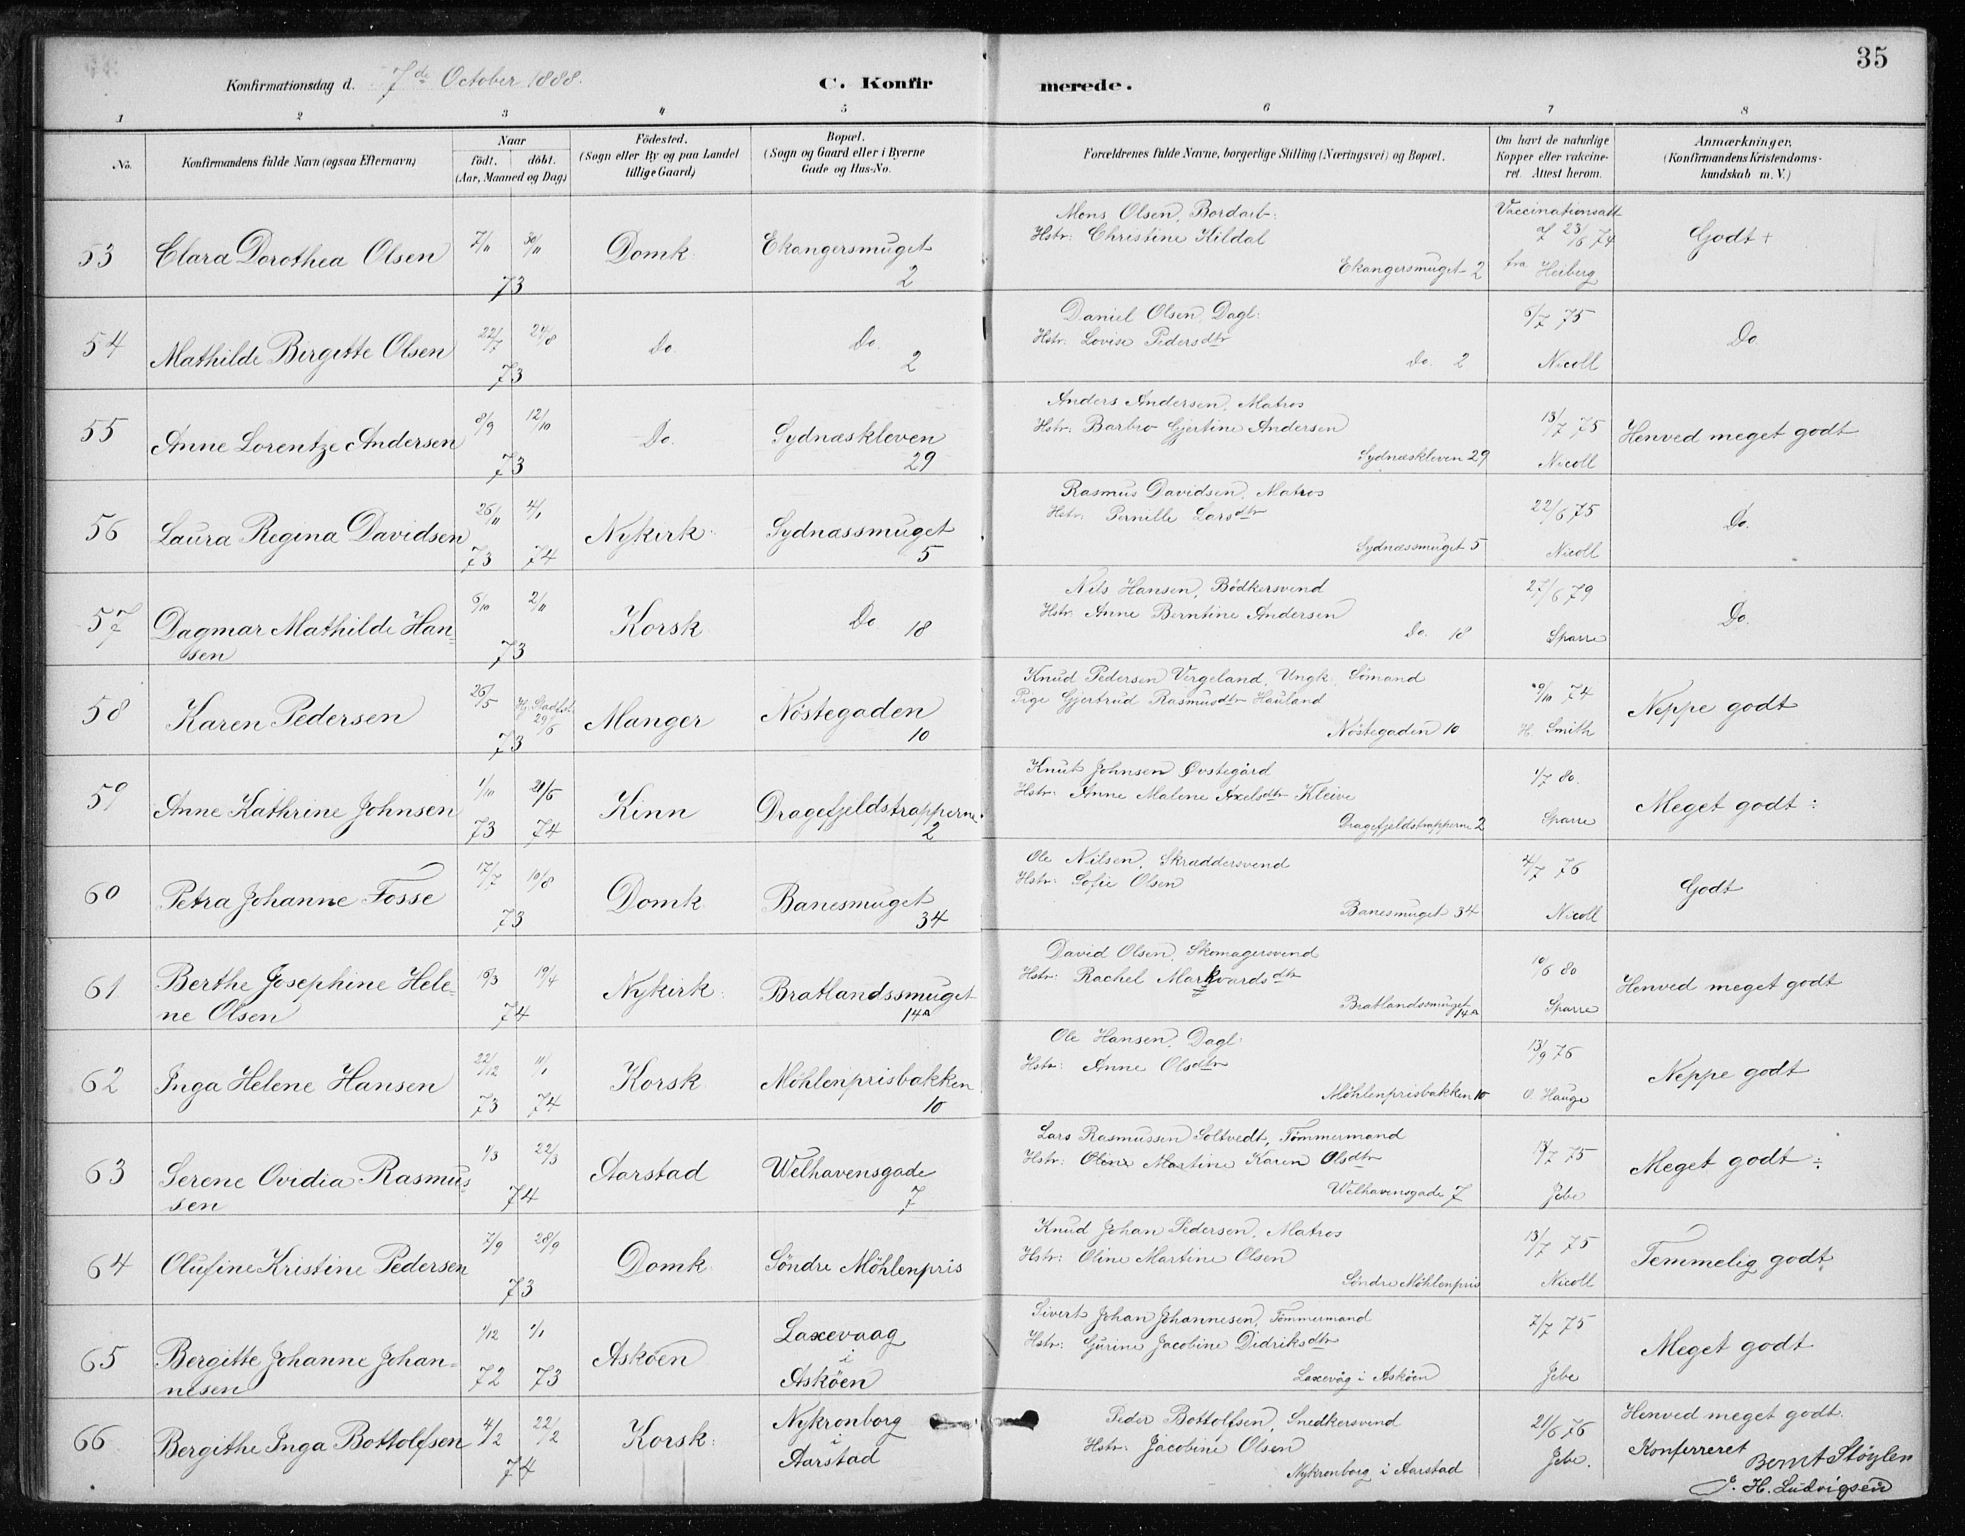 35
Konfirmationsdag d. 7de October 1888. C. Konfirmerede.
1 2 3 4 5 6 7 8
No. Konfirmandens fulde Navn (ogsaa Efternavn) Naar födt. döbt. (Aar, Maaned og Dag) Födested. (Sogn eller By og paa Landet tillige Gaard) Bopæl. (Sogn og Gaard eller i Byerne Gade og Hus-No. Forældrenes fulde Navne, borgerlige Stilling (Næringsvei) og Bopæl. Om havt de naturlige Kopper eller vakcineret. Attest herom. Anmærkninger. (Konfirmandens Kristendomskundskab m. V.)
53 Clara Dorothea Olsen 7/11 30/11 73 Domk. Ekangersmuget 2 Mons Olsen, Bordarb: Hstr: Christine Kildal Ekangersmuget 2 Vaccinationsatt. af 23/6 74 fra Heiberg Godt +
54 Mathilde Birgitte Olsen 22/7 24/8 73 Do. Do. 2 Daniel Olsen, Dagl: Hstr. Lovise Pedersdtr Do. 2 6/7 75 Nicoll Do.
55 Anne Lorentze Andersen 8/9 12/10 73 Do. Sydnæskleven 29 Anders Andersen, Matros Hstr: Barbro Gjertine Andersen Sydnæskleven 29 13/7 75 Nicoll Henved meget godt
56 Laura Regina Davidsen 26/11 73 4/1 74 Nykirk: Sydnæssmuget 5 Rasmus Davidsen, Matros Hstr. Pernille Larsdtr Sydnæssmuget 5 22/6 75 Nicoll Do.
57 Dagmar Mathilde Hansen 6/10 2/11 73 Korsk. Do 18 Nils Hansen, Bödkersvend Hstr. Anne Berntine Andersen Do. 18 27/6 79 Sparre Do.
58 Karen Pedersen 26/5 29/6 73 Manger Nöstegaden 10 Knud Pedersen Vergeland, Ungk. Sömand Pige Gjertrud Rasmusdtr Hauland Nöstegaden 10 74 H. Smith Neppe godt
59 Anne Kathrine Johnsen 1/10 73 21/6 74 Kinn Dragefjeldstrapperne 2 Knut Johnsen Övstegård Hstr: Anne Malene Axelsdtr Kleive Dragefjeldstrapperne 2 1/7 80. Sparre Meget godt ÷
60 Petra Johanne Fosse 17/7 10/8 73 Domk Banesmuget 34 Ole Nilsen, Skræddersvend Hstr: Sofie Olsen Banesmuget 34 4/7 76 Nicoll Godt
61 Berthe Josephine Helene Olsen 16/3 19/4 74 Nykirk: Bratlandssmuget 14A David Olsen, Skomagersvend Hstr: Rachel Markvardsdtr Bratlandssmuget 14A 10/6 80 Sparre Henved meget godt
62 Inga Helene Hansen 22/12 73 11/1 74 Korsk Möhlenprisbakken 10 Ole Hansen, Dagl: Hstr: Anne Olsdtr Möhlenprisbakken 10 13/9 76 O. Hauge Neppe godt
63 Serene Ovidia Rasmussen 1/3 22/3 74 Aarstad Welhavensgade 7 Lars Rasmussen Soltvedt, Tömmermand Hstr: Oline Martine Karen Olsdtr Welhavensgade 7 13/7 75 Jebe Meget godt ÷
64 Olufine Kristine Pedersen 7/9 28/9 73 Domk Söndre Möhlenpris Knud Johan Pedersen, Matros Hstr: Oline Martine Olsen Söndre Möhlenpris 13/7 75 Nicoll Temmelig godt
65 Bergitte Johanne Johannesen 1/12 72 1/1 73 Asköen Laxevaag i Asköen Sivert Johan Johannesen, Tömmermand Hstr: Gurine Jacobine Didriksdtr Laxevåg i Asköen 2/7 75 Jebe Meget godt
66 Bergithe Inga Bottolfsen 4/2 22/2 74 Korsk: Nykronborg i Aarstad Peder Bottolfsen, Snedkersvend Hstr: Jacobine Olsen Nykronborg i Aarstad 21/6 76 Jebe. Henved meget godt.
Konferreret Bernt Stöylen
J. H. Ludvigsen